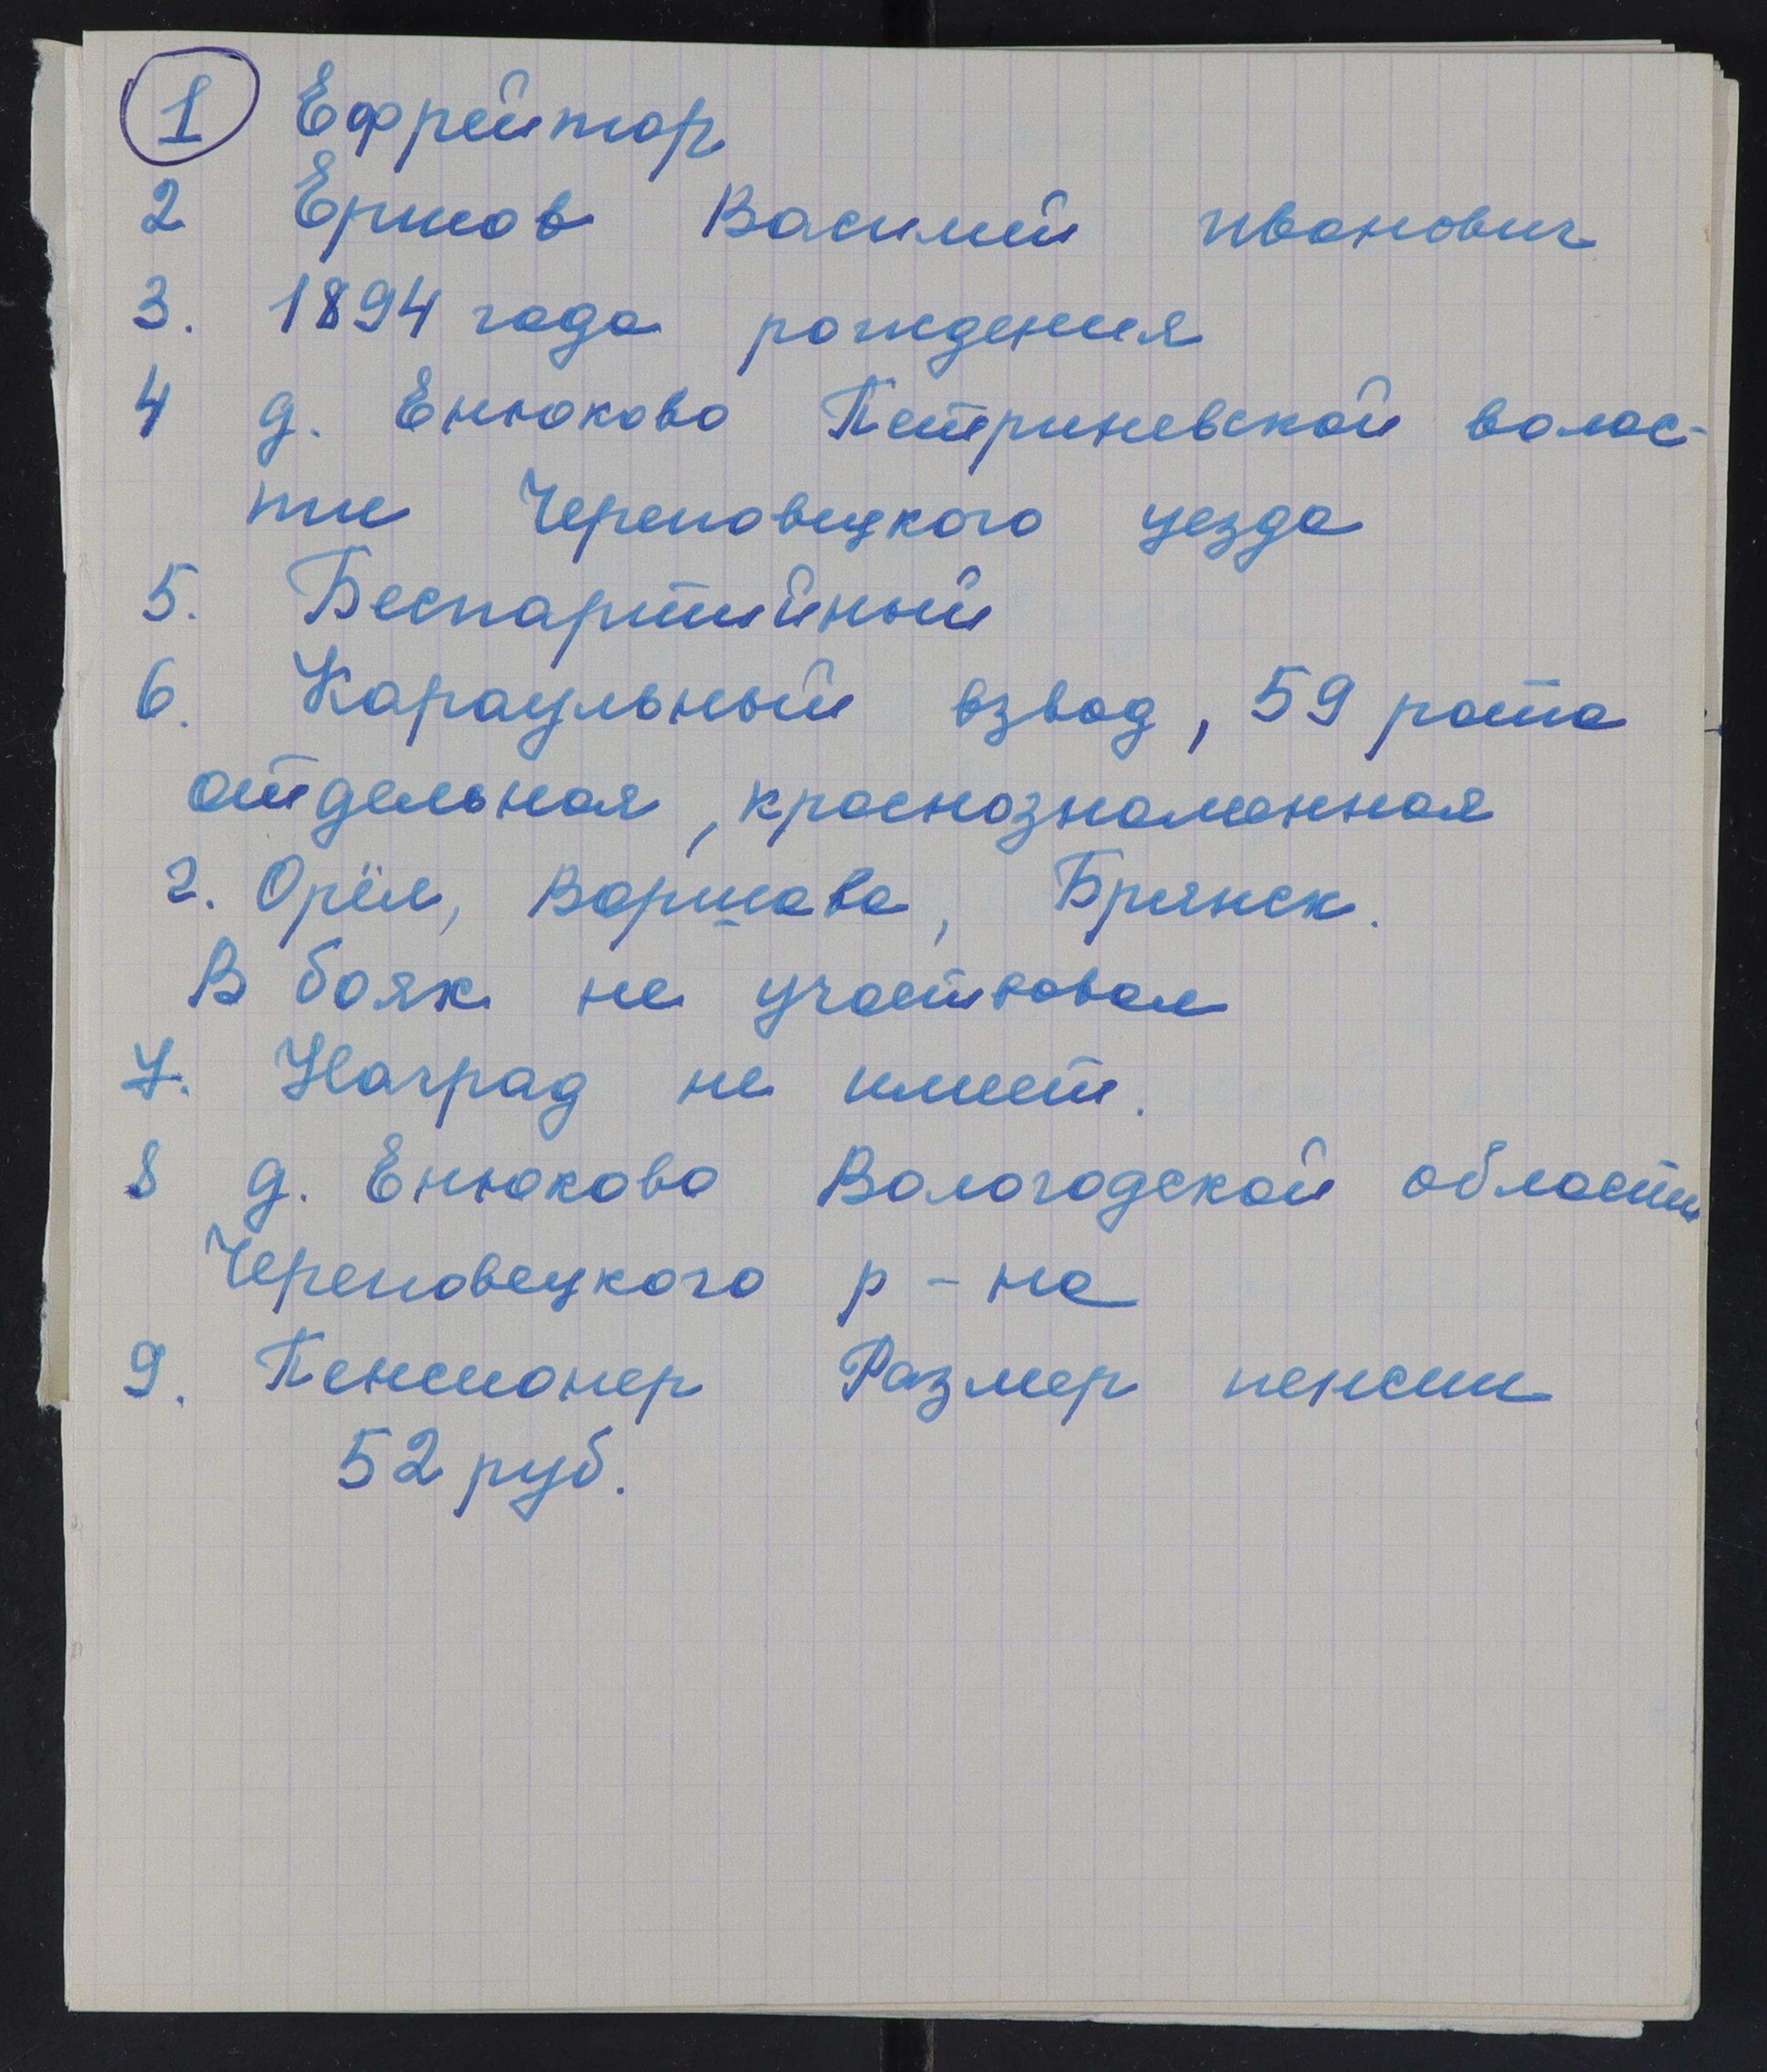 1 Ефрейтор
2 Ершов Василий Иванович
3. 1894 года рождения
4 д. Енюково Петриневской волос-
ти Череповецкого уезда
5. Беспартийный
6. Караульный взвод, 59 рота
отдельная, краснознаменная
г. Орёл, Варшава, Брянск.
В боях не участвовал
7. Наград не имеет.
8 д. Енюково Вологодской области
Череповецкого р-на
9. Пенсионер Размер пенсии
52 руб.